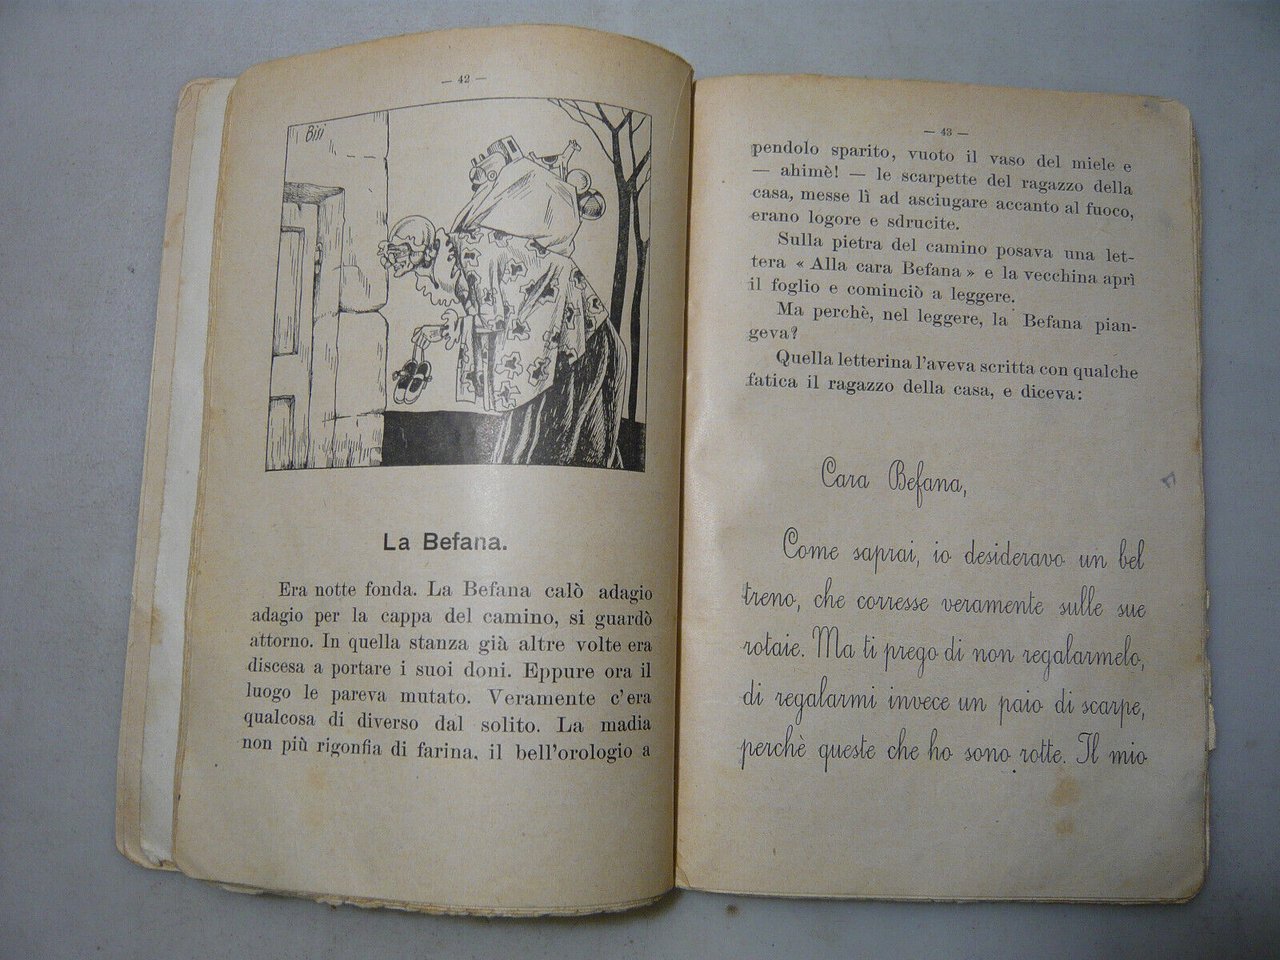 — 42 —
Bisi
La Befana.
Era notte fonda. La Befana calò adagio
adagio per la cappa del camino, si guardò
attorno. In quella stanza già altre volte era
discesa a portare i suoi doni. Eppure ora il
luogo le pareva mutato. Veramente c'era
qualcosa di diverso dal solito. La madia
non più rigonfia di farina, il bell'orologio a
— 43 —
pendolo sparito, vuoto il vaso del miele e
— ahimè! — le scarpette del ragazzo della
casa, messe lì ad asciugare accanto al fuoco,
erano logore e sdrucite.
Sulla pietra del camino posava una let-
tera « Alla cara Befana » e la vecchina aprì
il foglio e cominciò a leggere.
Ma perchè, nel leggere, la Befana pian-
geva?
Quella letterina l'aveva scritta con qualche
fatica il ragazzo della casa, e diceva:
Cara Befana,
Come saprai, io desideravo un bel
treno, che corresse veramente sulle sue
rotaie. Ma ti prego di non regalarmelo,
di regalarmi invece un paio di scarpe,
perchè queste che ho sono rotte. Il mio